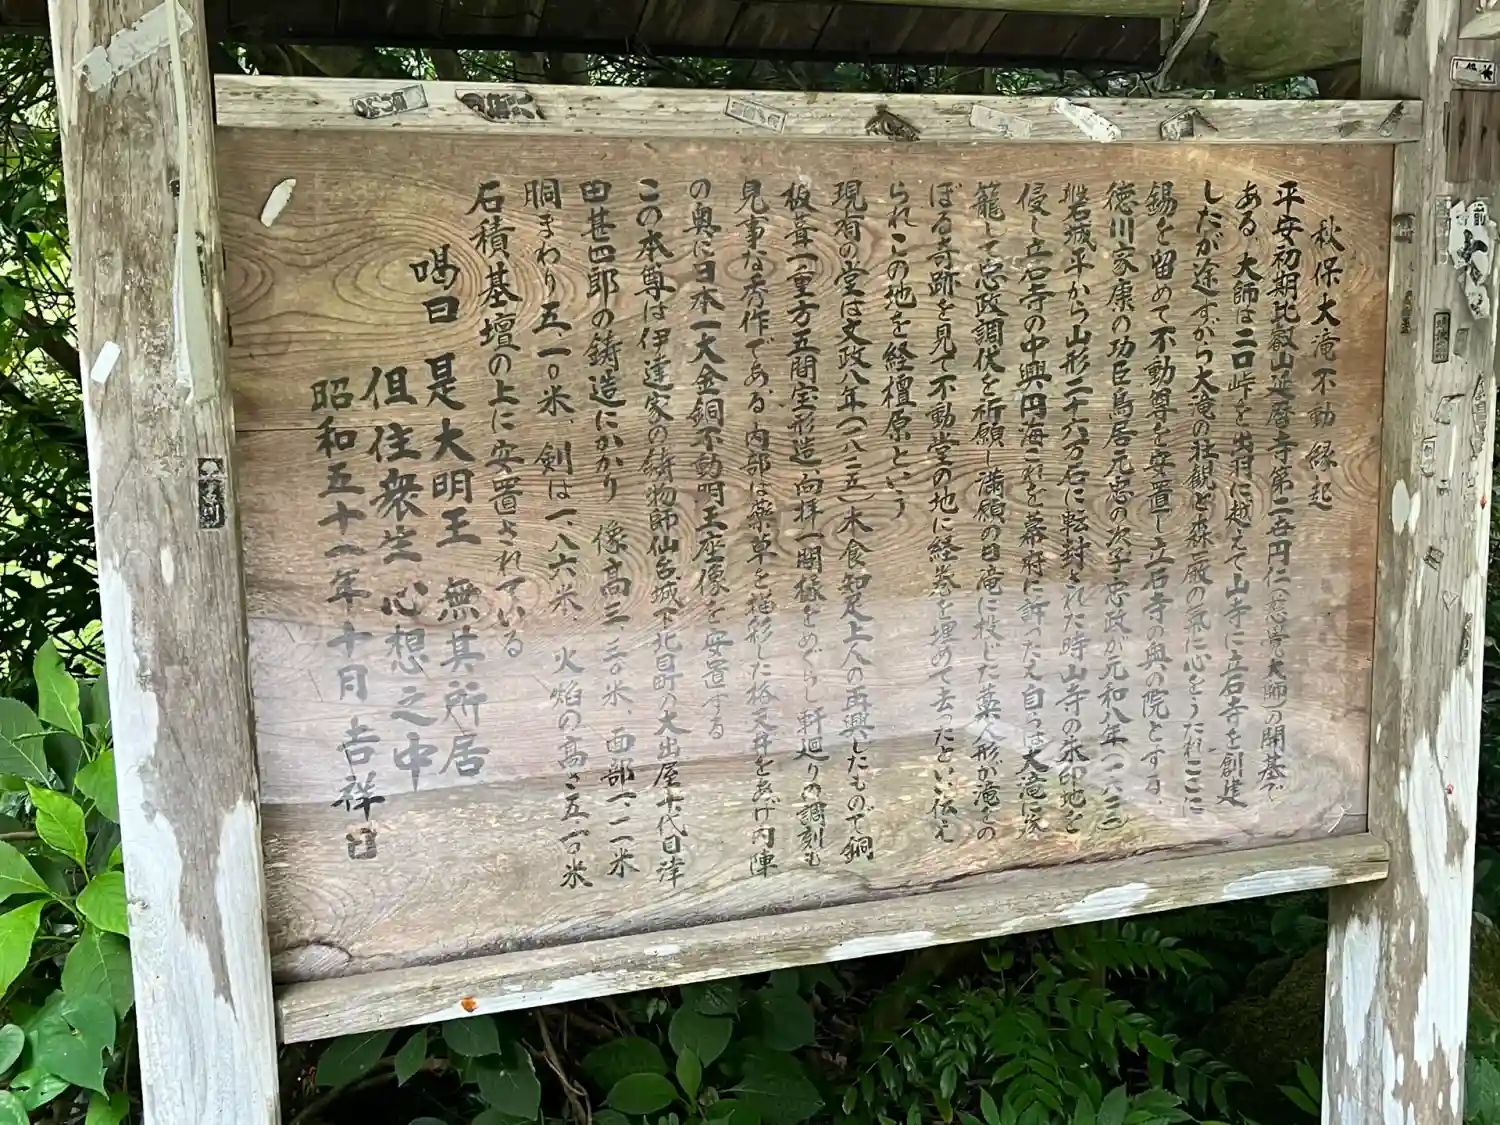 秋保大滝不動縁起
平安初期比叡山延暦寺第二世円仁(慈覚大師)の開基で
ある、大師は二口峠を出羽に越えて山寺に立石寺を創建
したが途すがら大滝の壮観と森厳の氣に心をうたれここに
錫を留めて不動尊を安置し立石寺の奥の院とする、
徳川家康の功臣鳥居元忠の次子忠政が元和八年(一六二二)
磐城平から山形二十六万石に転封された時山寺の朱印地を
侵し立石寺の中興円海これを幕府に訴ったえ自らは大滝に参
籠して忠政調伏を祈願し満願の日滝に投じた藁人形が滝をの
ぼる寺跡を見て不動堂の地に経巻を埋めて去ったといい伝え
られこの地を経檀原という
現有の堂は文政八年(一八二五)木食知足上人の再興したもので銅
板葺一重方五間宝形造、向拝一間縁をめぐらし軒廻りの調刻も
見事な秀作である、内部は薬草を描彩した格天井をあげ内陣
の奥に日本一大金銅不動明王座像を安置する
この本尊は伊達家の鋳物師仙台城下北目町の大出屋十代目津
田甚四郎の鋳造にかかり 像高三、三〇米、面部一、二一米
胴まわり五、一〇米、剣は一、八六米、火焰の高さ五、一〇米
石積基壇の上に安置されている
喝曰 是大明王 無其所居
但住衆生 心想之中
昭和五十一年十月 吉祥日